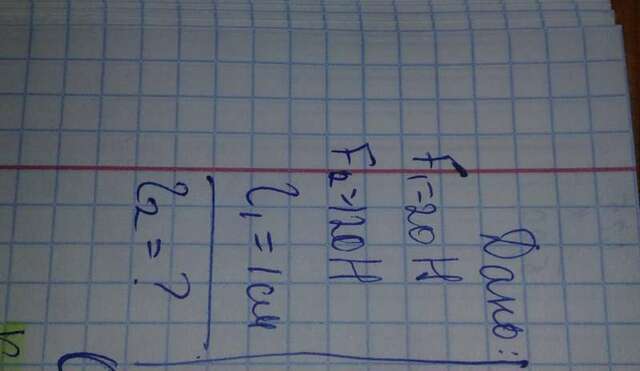 Дано:
F₁=20 Н
F₂=120Н
l₁=1см
l₂=?